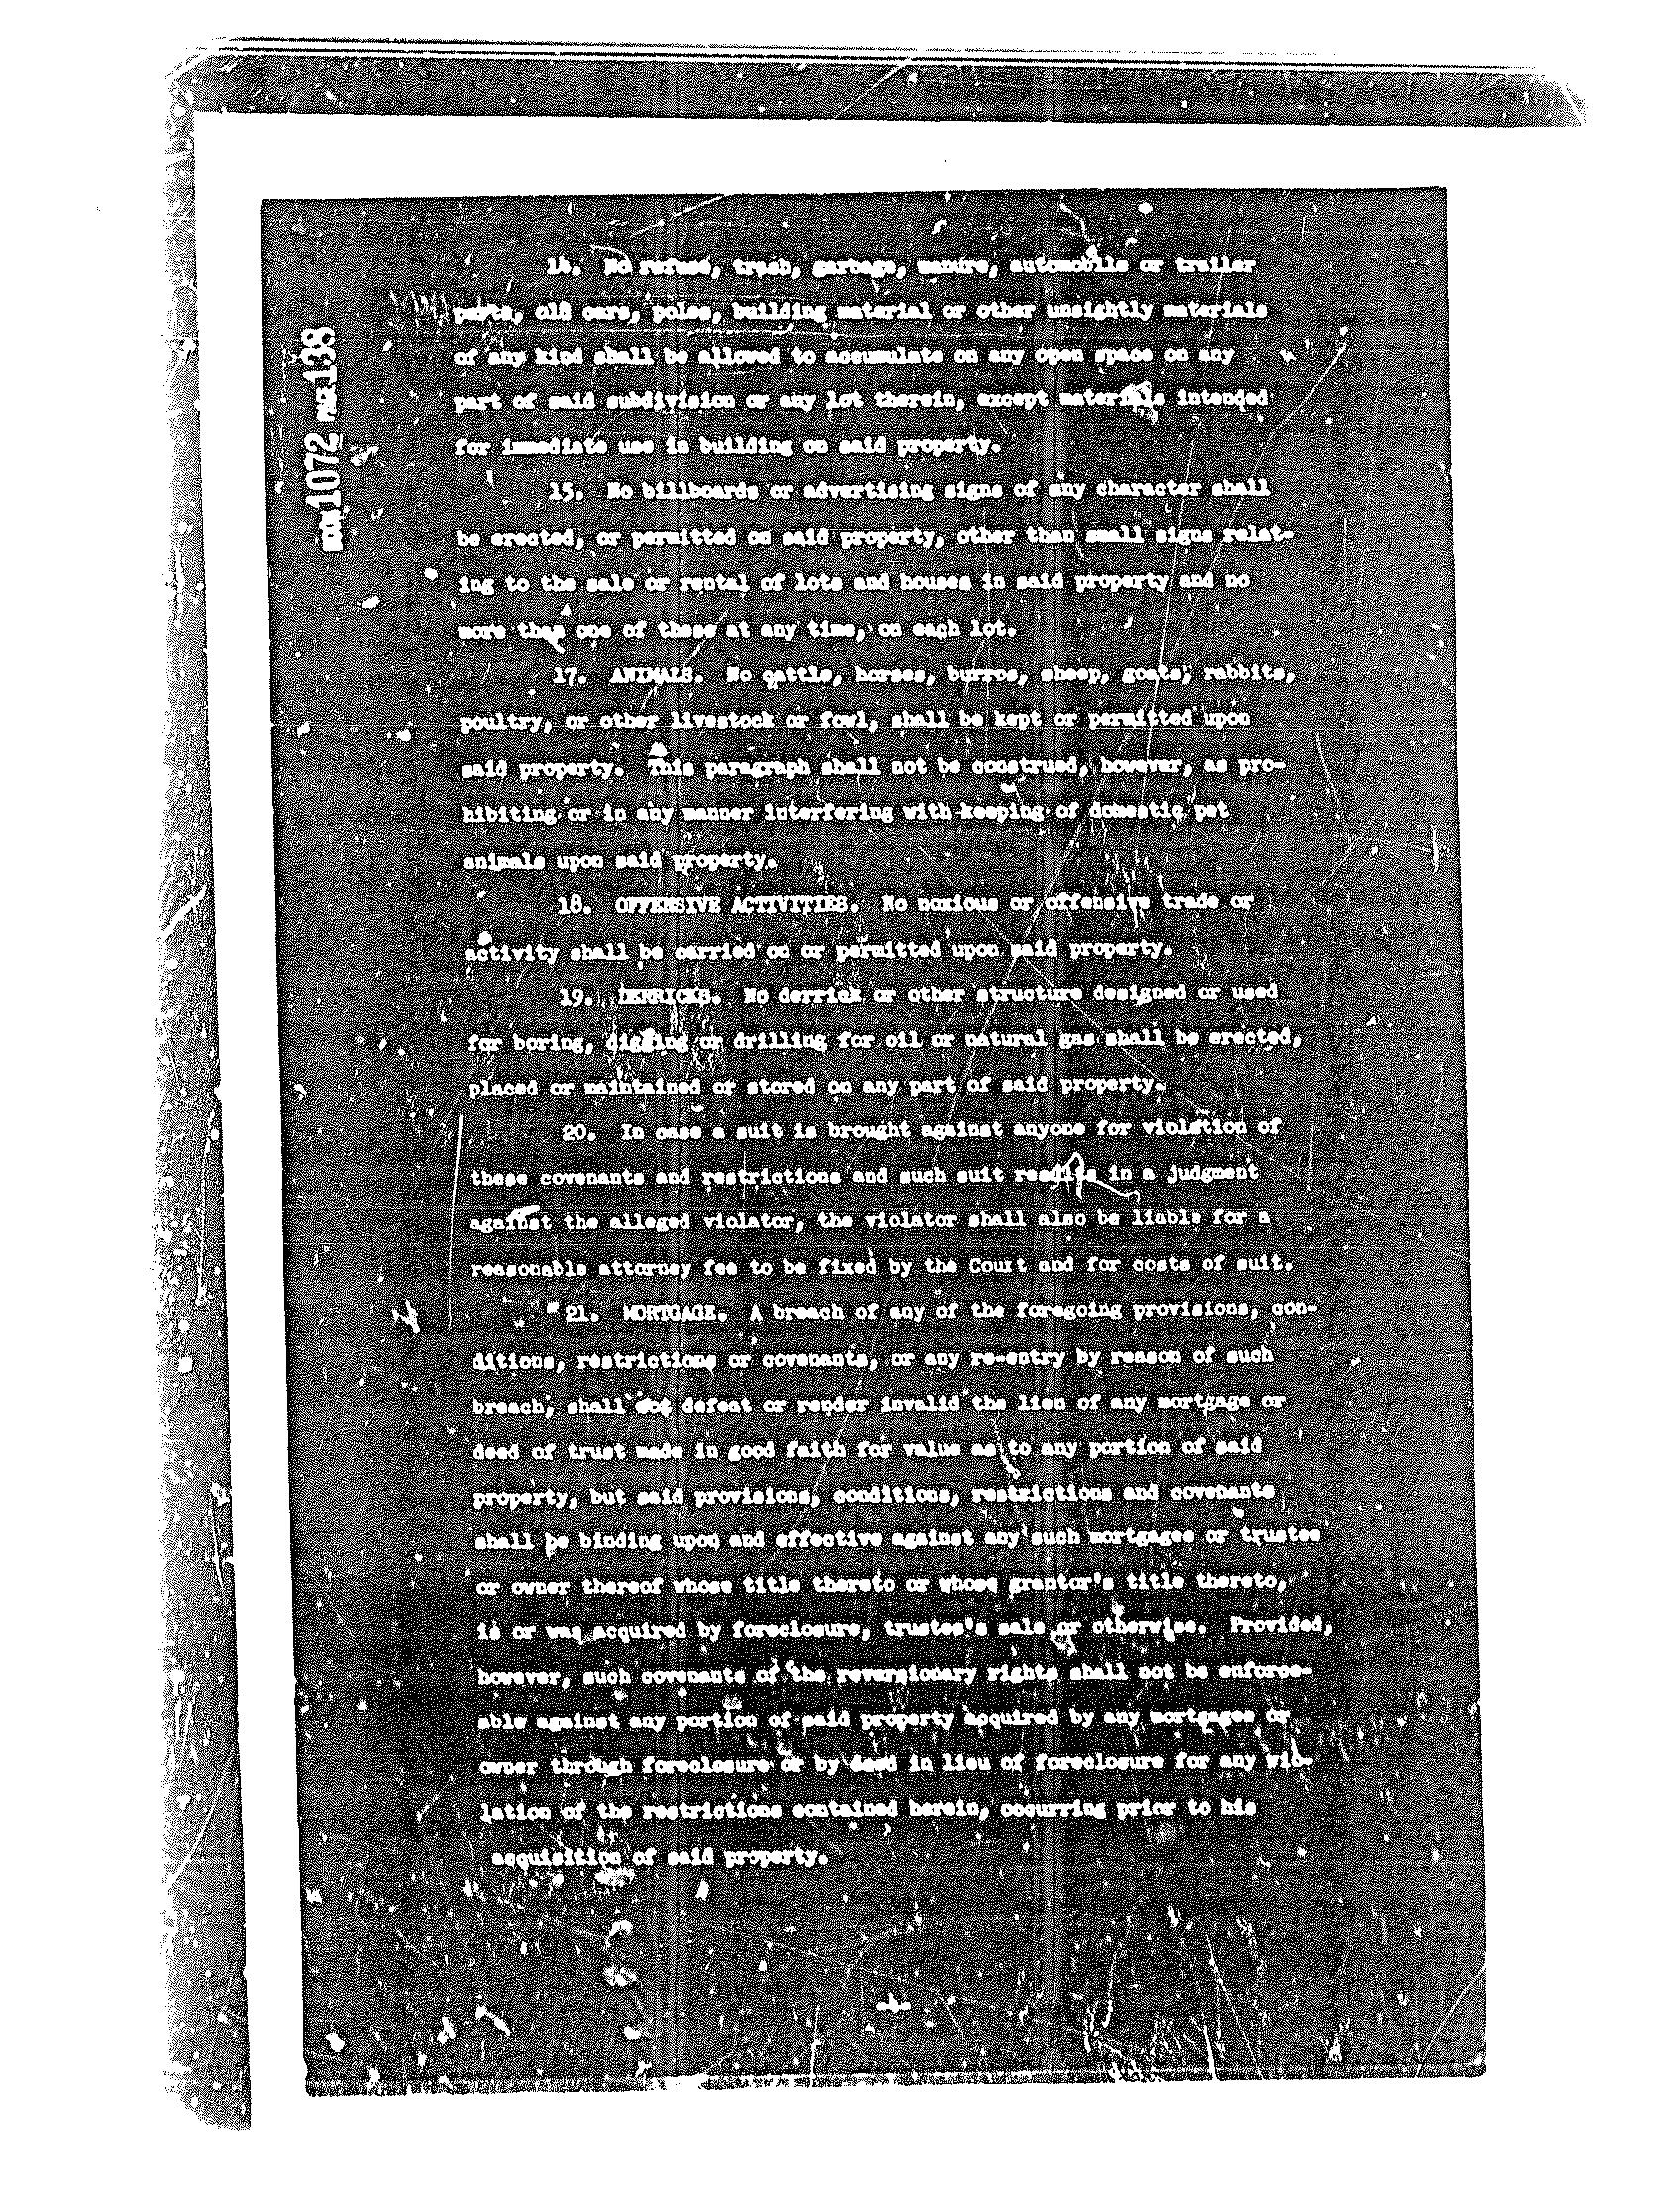 BOOK 1072 PAGE 138
14. No refuse, trash, garbage, manure, automobile or trailer
parts, old cars, poles, building material or other unsightly materials
of any kind shall be allowed to accumulate on any open space on any
part of said subdivision or any lot therein, except materials intended
for immediate use in building on said property.
15. No billboards or advertising signs of any character shall
be erected, or permitted on said property, other than small signs relat-
ing to the sale or rental of lots and houses in said property and no
more than one of these at any time, on each lot.
17. ANIMALS. No cattle, horses, burros, sheep, goats, rabbits,
poultry, or other livestock or fowl, shall be kept or permitted upon
said property. This paragraph shall not be construed, however, as pro-
hibiting or in any manner interfering with keeping of domestic pet
animals upon said property.
18. OFFENSIVE ACTIVITIES. No noxious or offensive trade or
activity shall be carried on or permitted upon said property.
19. DERRICKS. No derrick or other structure designed or used
for boring, digging or drilling for oil or natural gas shall be erected,
placed or maintained or stored on any part of said property.
20. In case a suit is brought against anyone for violation of
these covenants and restrictions and such suit results in a judgment
against the alleged violator, the violator shall also be liable for a
reasonable attorney fee to be fixed by the Court and for costs of suit.
21. MORTGAGE. A breach of any of the foregoing provisions, con-
ditions, restrictions or covenants, or any re-entry by reason of such
breach, shall not defeat or render invalid the lien of any mortgage or
deed of trust made in good faith for value as to any portion of said
property, but said provisions, conditions, restrictions and covenants
shall be binding upon and effective against any such mortgagee or trustee
or owner thereof whose title thereto or whose grantor's title thereto,
is or was acquired by foreclosure, trustee's sale or otherwise. Provided,
however, such covenants of the reversionary rights shall not be enforce-
able against any portion of said property acquired by any mortgagee or
owner through foreclosure or by deed in lieu of foreclosure for any vio-
lation of the restrictions contained herein, occurring prior to his
acquisition of said property.